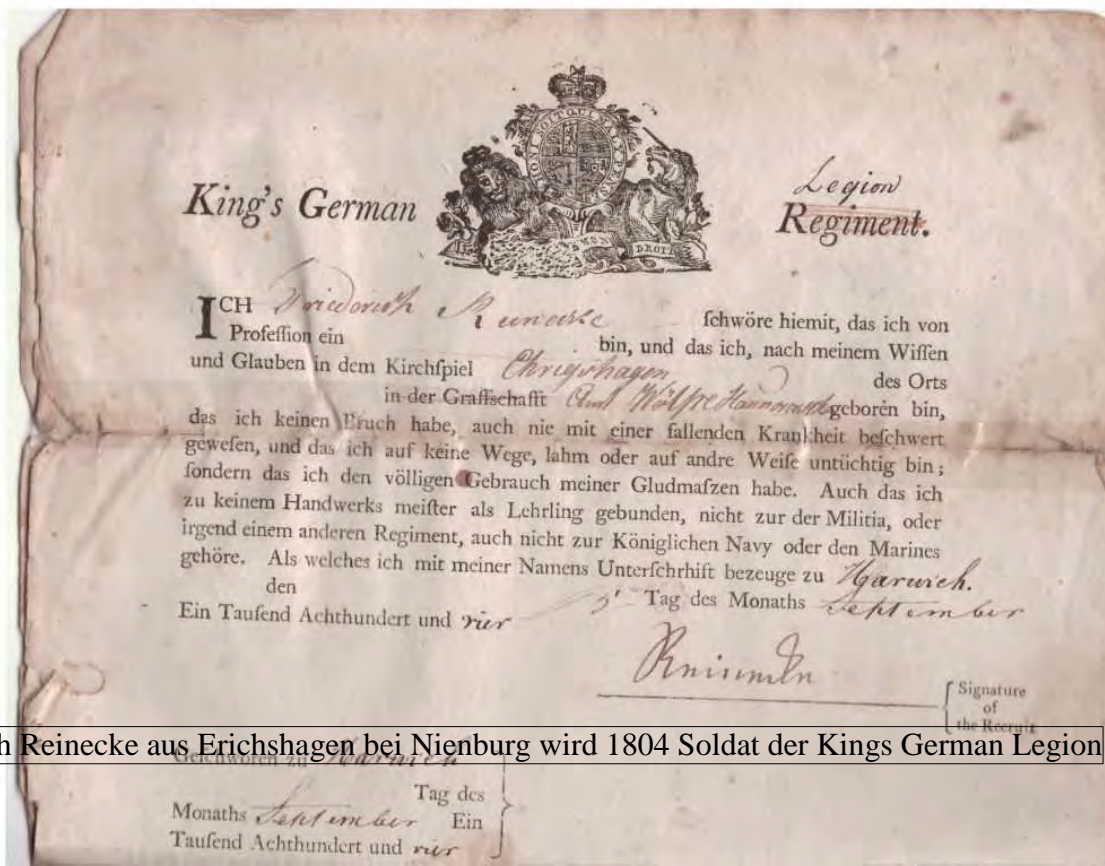 HONI SOIT QUI MAL Y PENSE
MON DROIT
King's German
Legion
Regiment.
ICH Friederich Reinecke ſchwöre hiemit, das ich von
Profeſſion ein bin, und das ich, nach meinem Wiſſen
und Glauben in dem Kirchſpiel des Orts
in der Graffſchafft Amt Wölpe Hannover geboren bin,
das ich keinen Bruch habe, auch nie mit einer fallenden Krankheit beſchwert
geweſen, und das ich auf keine Wege, lahm oder auf andre Weiſe untüchtig bin;
ſondern das ich den völligen Gebrauch meiner Gludmaſzen habe. Auch das ich
zu keinem Handwerks meiſter als Lehrling gebunden, nicht zur der Militia, oder
irgend einem anderen Regiment, auch nicht zur Königlichen Navy oder den Marines
gehöre. Als welches ich mit meiner Namens Unterſchrhift bezeuge zu Harwich.
den 5t Tag des Monaths September
Ein Tauſend Achthundert und vier
Signature
of
the Recruit
h Reinecke aus Erichshagen bei Nienburg wird 1804 Soldat der Kings German Legion
Geſchworen zu Harwich
Tag des
Monaths September Ein
Tauſend Achthundert und vier